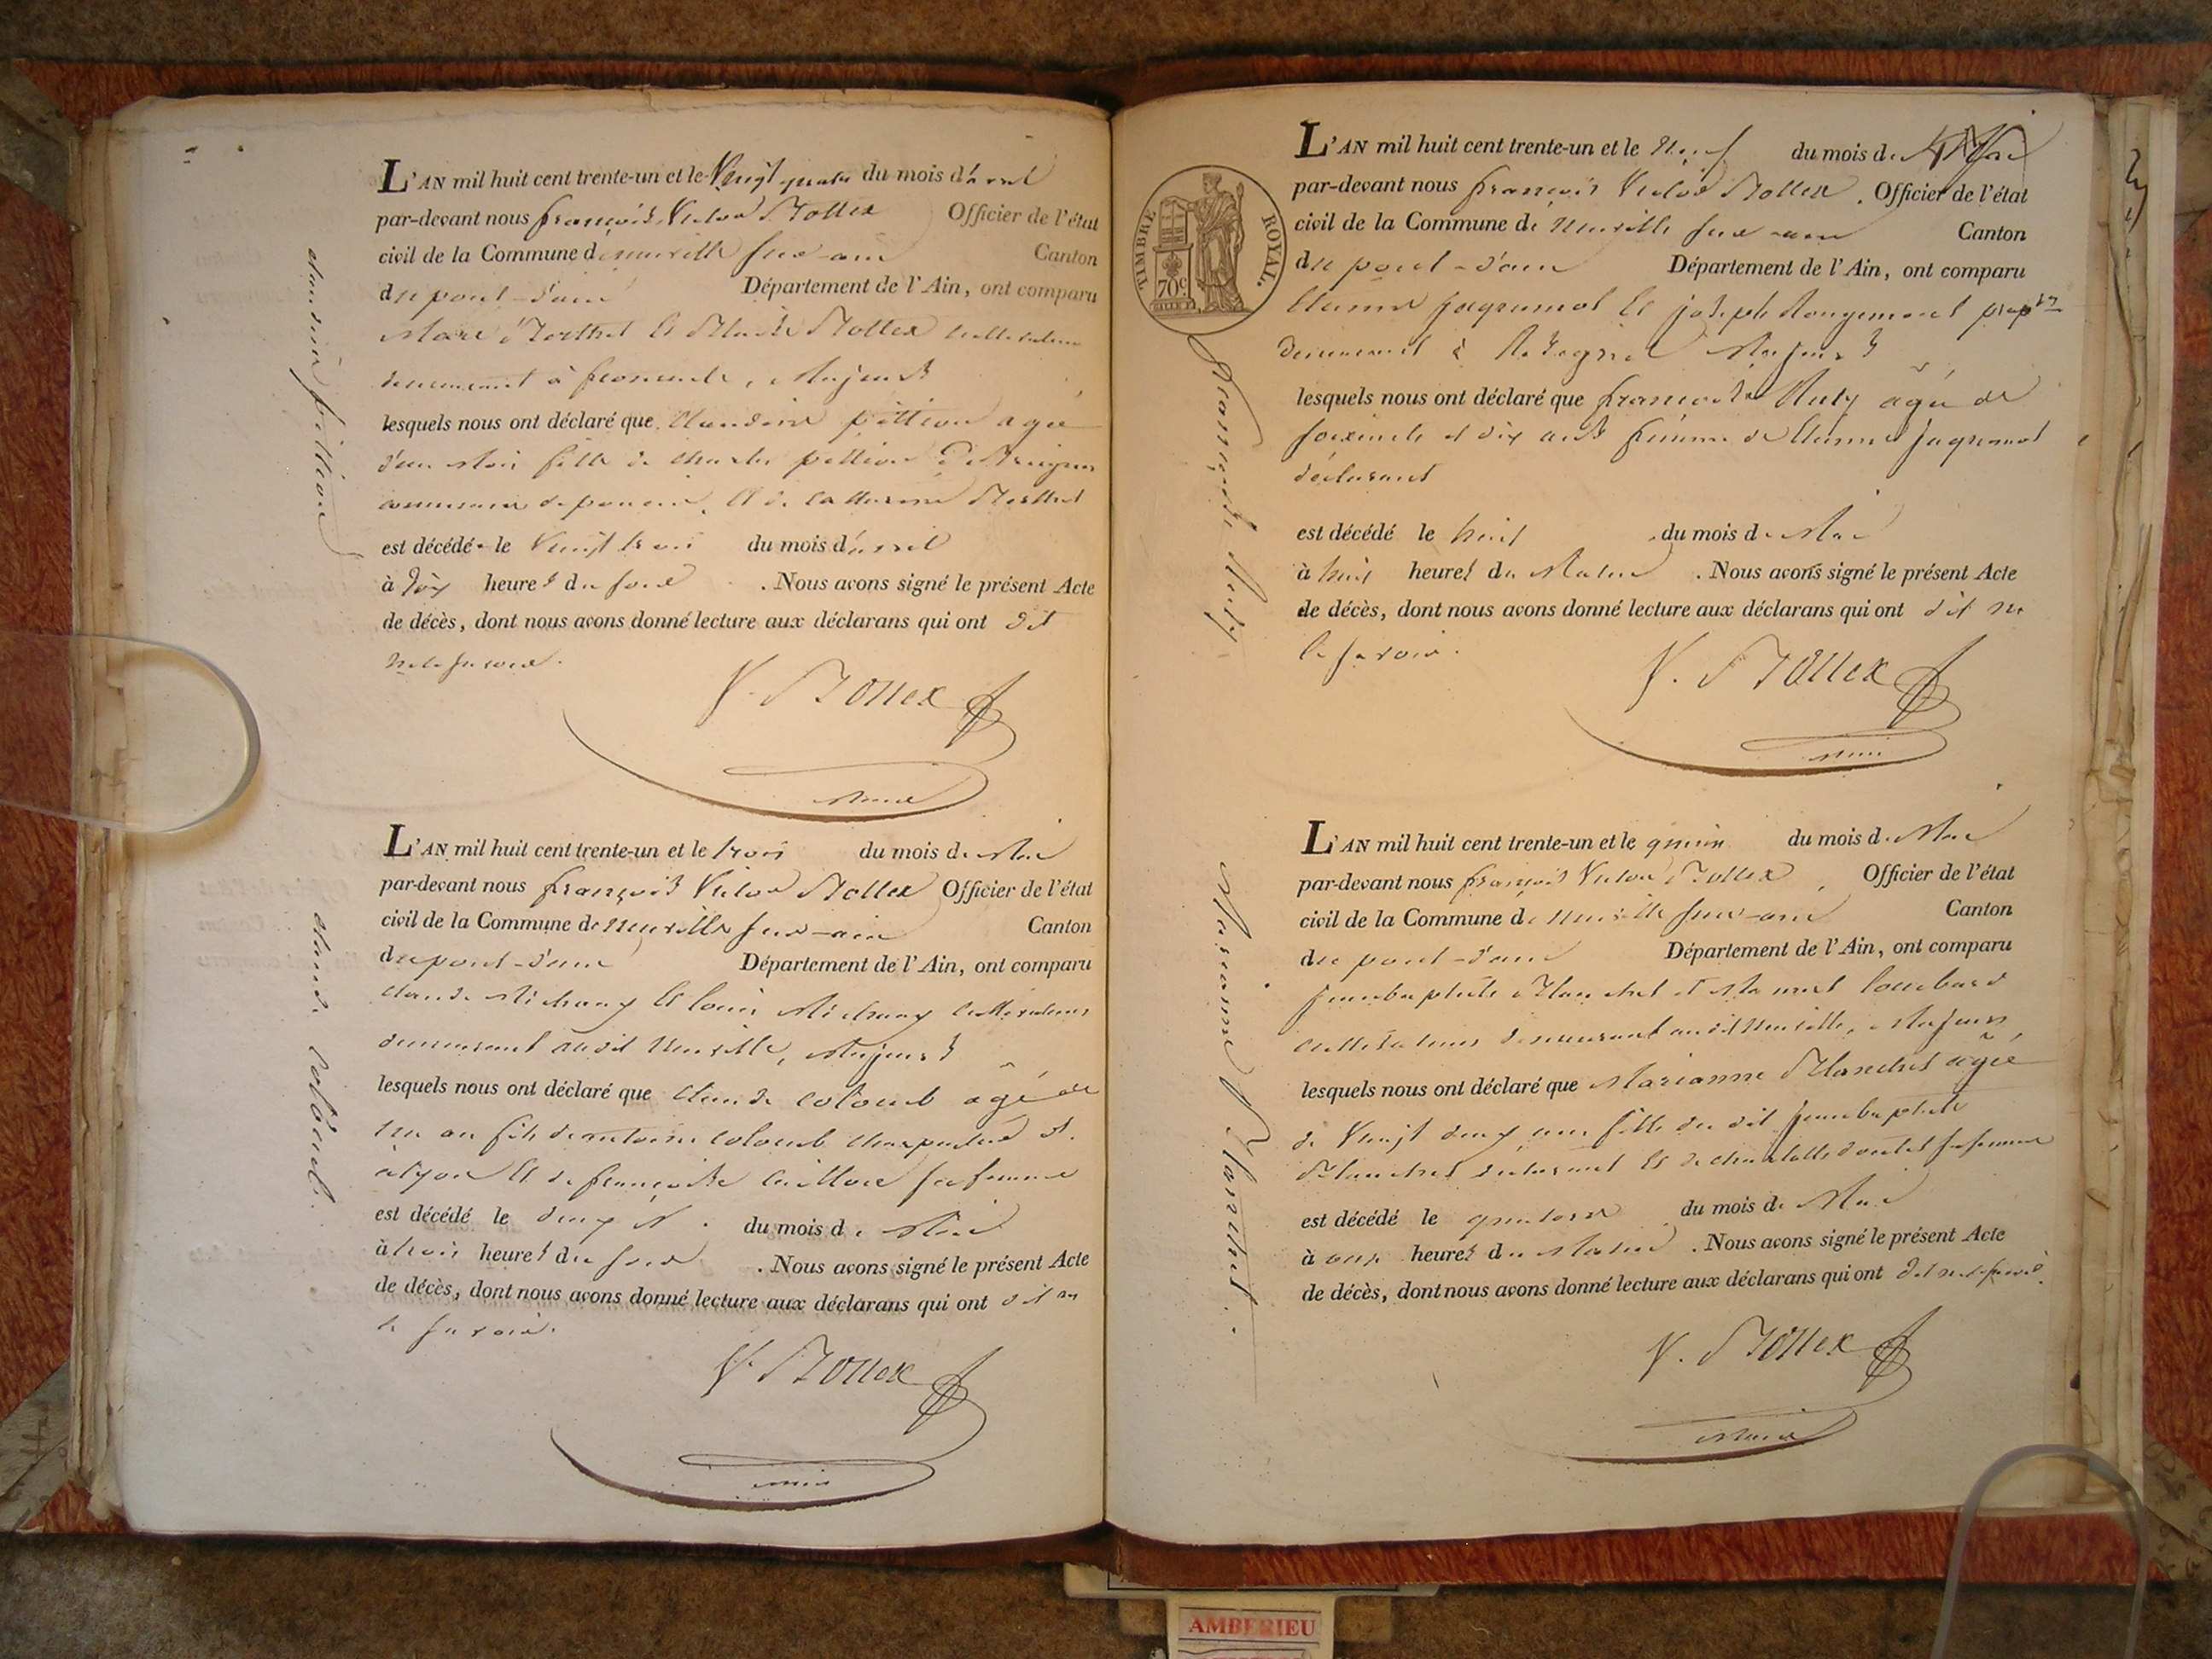 L'AN mil huit cent trente-un et le Vingt quatre du mois d'avril
par-devant nous françois Victor Bottex Officier de l'état
civil de la Commune de neuville sur-ain Canton
du pont-d'ain Département de l'Ain, ont comparu
Marc Berthet et Claude Bottex cultivateurs
demeurant à fromente, Majeurs
lesquels nous ont déclaré que Claudine pittion agée
d'un Mois fille de Charles pittion
commune de poncin, et de Catherine Berthet
est décédée le Vingt trois du mois d'avril
à dix heures du soir . Nous avons signé le présent Acte
de décès, dont nous avons donné lecture aux déclarans qui ont dit
ne le savoir.
V. Bottex
Maire
claudine pittion
L'AN mil huit cent trente-un et le trois du mois de Mai
par-devant nous françois Victor Bottex Officier de l'état
civil de la Commune de Neuville sur-ain Canton
du pont-d'ain Département de l'Ain, ont comparu
claude Michaux et louis Michaux cultivateurs
demeurant audit Neuville, Majeurs
lesquels nous ont déclaré que claude colomb âgé de
un an fils de antoine colomb charpentier
à lyon et de françoise sa femme
est décédé le deux du mois de Mai
à trois heures du soir . Nous avons signé le présent Acte
de décès, dont nous avons donné lecture aux déclarans qui ont dit ne
le savoir.
V. Bottex
maire
claude colomb.
TIMBRE ROYAL.
70c
L'AN mil huit cent trente-un et le Neuf du mois de Mai
par-devant nous françois Victor Bottex . Officier de l'état
civil de la Commune de Neuville sur-ain Canton
du pont-d'ain Département de l'Ain, ont comparu
Etienne jugremot et joseph Rougemont
demeurant à Majeurs
lesquels nous ont déclaré que françoise Ruty âgée de
soixante et dix ans femme de Etienne jugremot
déclarant
est décédé le huit du mois de Mai
à huit heures du Matin . Nous avons signé le présent Acte
de décès, dont nous avons donné lecture aux déclarans qui ont dit ne
le savoir.
V. Bottex
Maire
françoise Ruty
L'AN mil huit cent trente-un et le quinze du mois de Mai
par-devant nous françois Victor Bottex , Officier de l'état
civil de la Commune de Neuville sur-ain Canton
du pont-d'ain Département de l'Ain, ont comparu
jean baptiste Blanchet et lombard
cultivateurs demeurant audit Neuville, Majeurs
lesquels nous ont déclaré que Marianne Blanchet âgée
de Vingt deux ans fille du dit jean baptiste
Blanchet déclarant et de sa femme
est décédé le quatorze du mois de Mai
à onze heures du Matin . Nous avons signé le présent Acte
de décès, dont nous avons donné lecture aux déclarans qui ont dit ne le savoir.
V. Bottex
Maire
Marianne Blanchet.
AMBERIEU